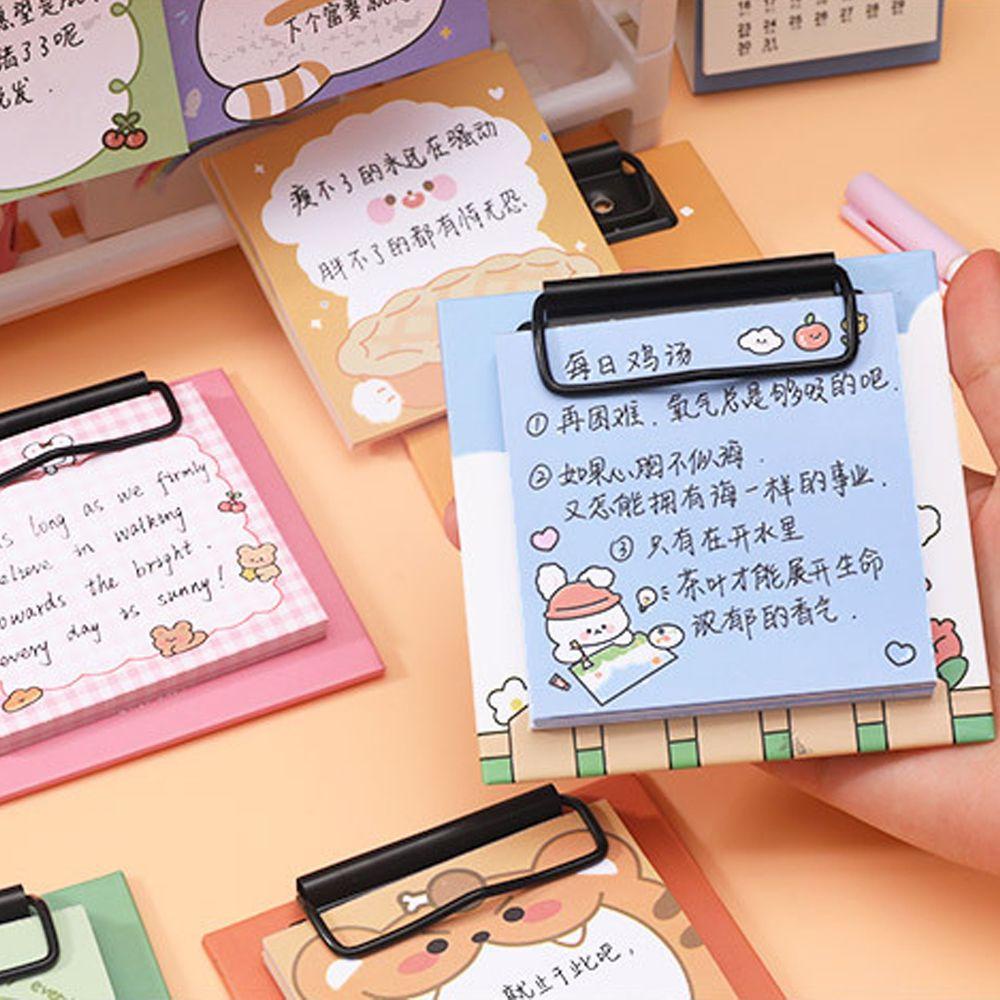 陆了3呢
下个富婆
瘦不了的永远在骚动
胖不了的都有恃无恐.
16 17 18 19
23 24 25 26 27 28 29
30 31
每日鸡汤
①再困难.氧气总是够吸的吧.
②如果心胸不似海.
又怎能拥有海一样的事业.
③只有在开水里
茶叶才能展开生命
浓郁的香气.
as long as we firmly
believe in walking
towards the bright.
every day is sunny!
就止于此吧,